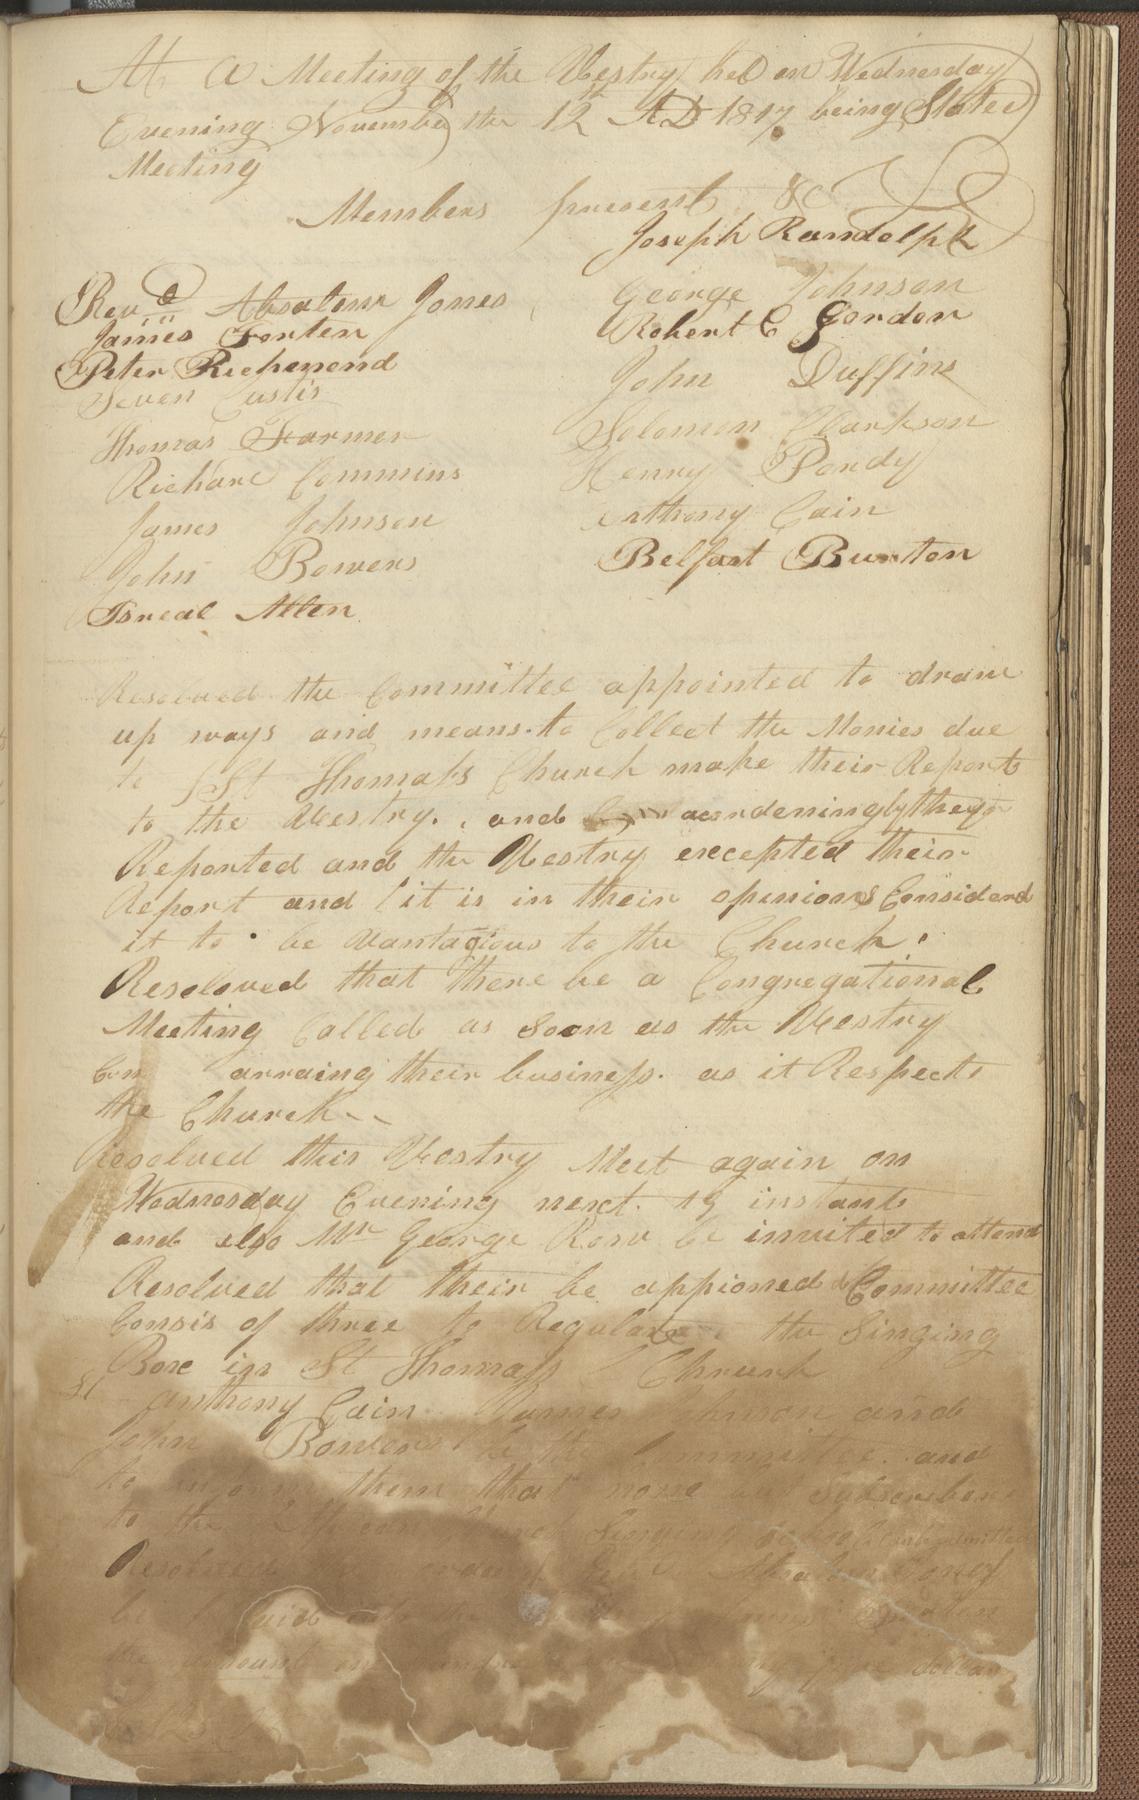 At A Meeting of the Vestry held on Wednesday
Evening November the 12th AD 1817 being Stated
Meeting
Members present &c
Joseph Randolph
Revd Absalom Jones
James Forten
Peter Richmond
Seven Custis
Thomas Farmer
Richard Commins
James Johnson
John Bowers
Isreal Allen
George Johnson
Robert C Gordon
John Duffins
Solomon Clarkson
Henry Pordy
Anthony Cain
Belfast Burton
Resolved the Committee appointed to draw
up ways and means to Collect the Monies due
to St Thomass Church make their Report
to the Vestry. and
Reported and the Vestry excepted their
Report and it is in their opinions Considerd
it to be vantagious to the Church.
Resoloved that there be a Congregational
Meeting Called as Soon as the Vestry
Can arraing their business. as it Respects
the Church
Resolved this Vestry Meet again on
Wednesday Evening next. 19 instant
and also Mr George Row be invited to attend
Resolved that their be appioned a Committee
Consis of three to Regulate the Singing
Bore in St Thomass Chruch
Anthony Cain James Johnson and
John Bowers be the Committee. and
to inform them that none but Subscribers
to the Singing
Resolved
be paid
the amount dollars